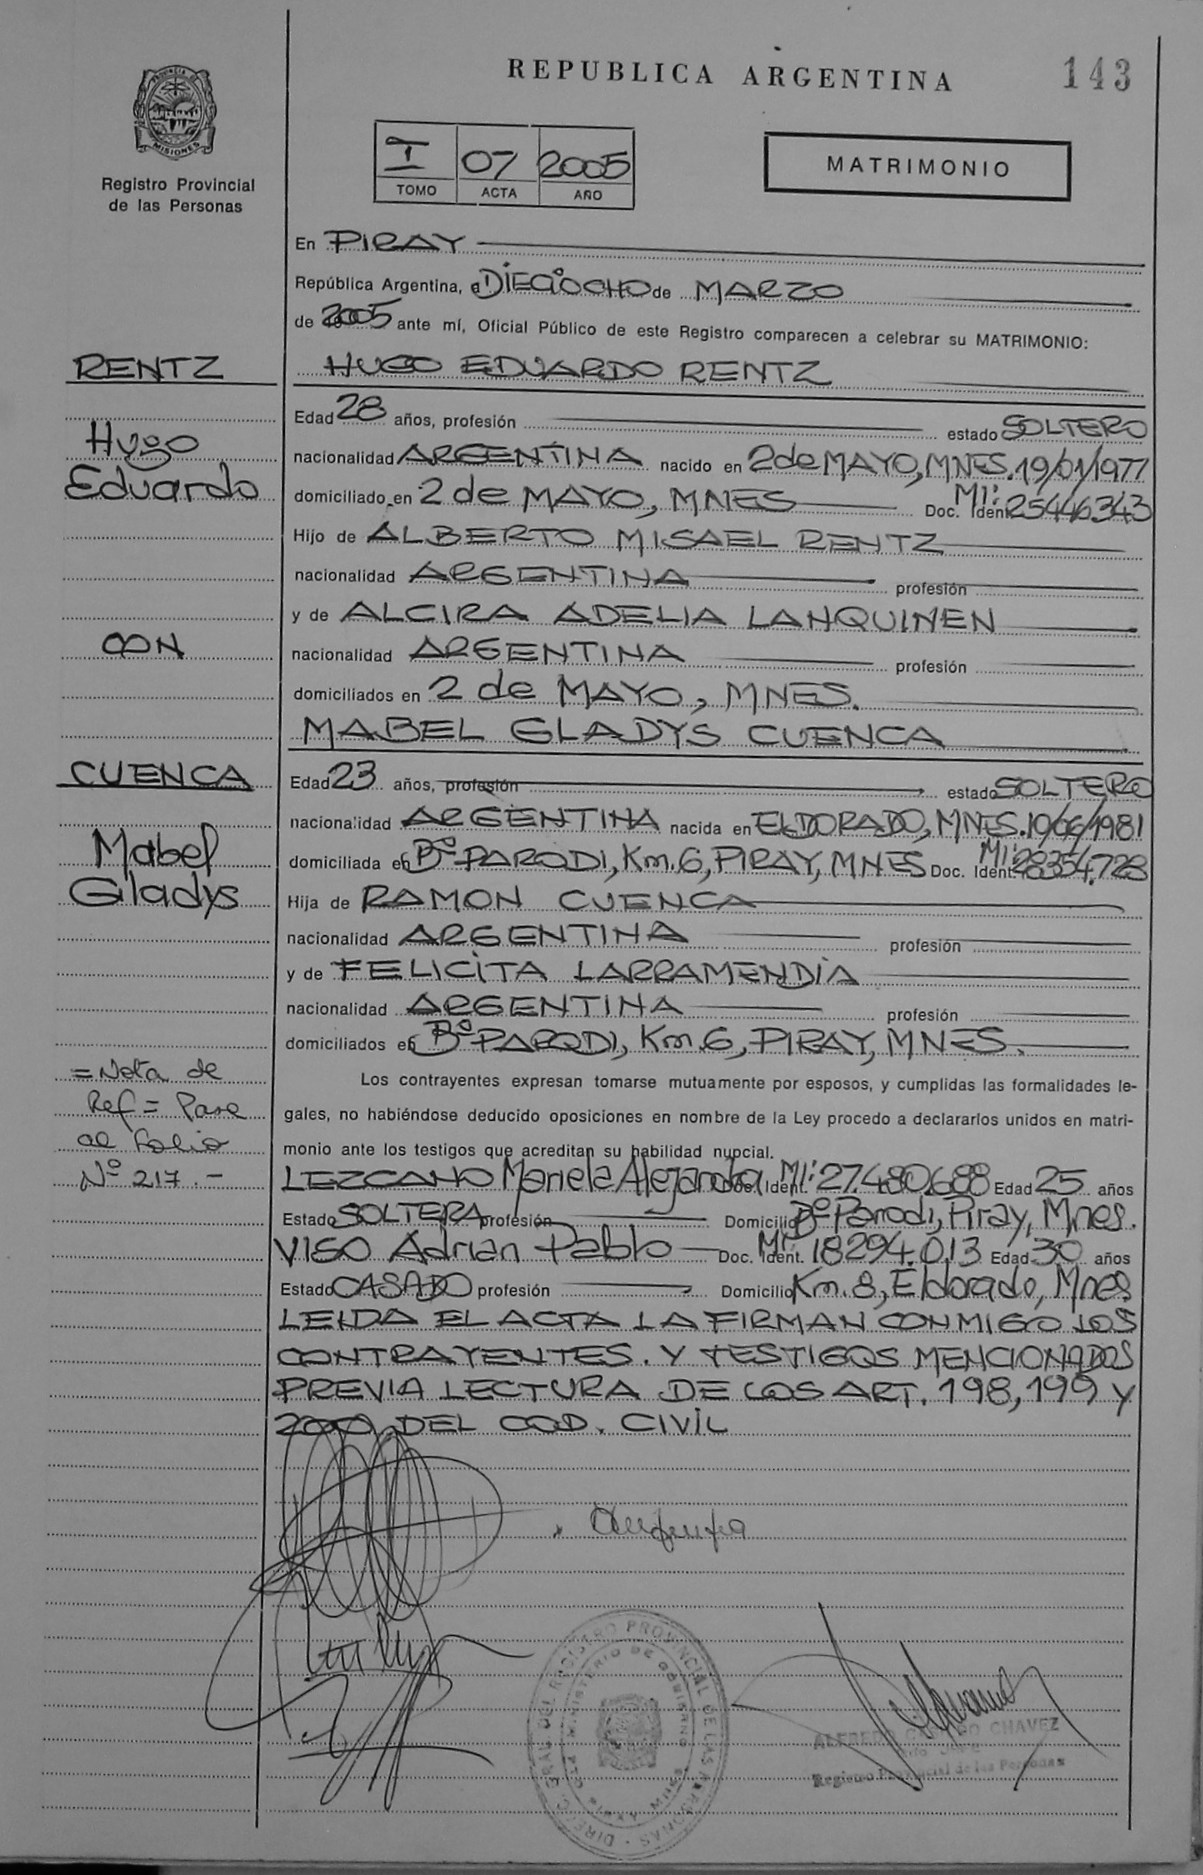 REPUBLICA ARGENTINA
143
PROVINCIA DE MISIONES
Registro Provincial
de las Personas
I 07 2005
TOMO ACTA AÑO
MATRIMONIO
En PIRAY
República Argentina, a DIECIOCHO de MARZO
de 2005 ante mí, Oficial Público de este Registro comparecen a celebrar su MATRIMONIO:
RENTZ
HUGO EDUARDO RENTZ
Edad 28 años, profesión estado SOLTERO
Hugo
nacionalidad ARGENTINA nacido en 2 de MAYO, MNES. 19/01/1977
Eduardo
domiciliado en 2 de MAYO, MNES Doc. Ident. MI: 25446.343
Hijo de ALBERTO MISAEL RENTZ
nacionalidad ARGENTINA profesión
y de ALCIRA ADELIA LANQUINEN
CON
nacionalidad ARGENTINA profesión
domiciliados en 2 de MAYO, MNES.
MABEL GLADYS CUENCA
CUENCA
Edad 23 años, profesión estado SOLTERO
nacionalidad ARGENTINA nacida en ELDORADO, MNES. 10/06/1981
Mabel
domiciliada en Bº PARODI, Km. 6, PIRAY, MNES Doc. Ident. MI: 28354.728
Gladys
Hija de RAMON CUENCA
nacionalidad ARGENTINA profesión
y de FELICITA LARRAMENDIA
nacionalidad ARGENTINA profesión
domiciliados en Bº PARODI, Km. 6, PIRAY, MNES.
= Nota de
Ref = Pase
al Folio
Nº 217.-
Los contrayentes expresan tomarse mutuamente por esposos, y cumplidas las formalidades le-
gales, no habiéndose deducido oposiciones en nombre de la Ley procedo a declararlos unidos en matri-
monio ante los testigos que acreditan su habilidad nupcial.
LEZCANO Mariela Alejandra Doc. Ident. MI: 27.480.688 Edad 25 años
Estado SOLTERA profesión Domicilio Bº Parodi, Piray, Mnes.
VISO Adrian Pablo Doc. Ident. MI. 18294.013 Edad 30 años
Estado CASADO profesión Domicilio Km. 8, Eldorado, Mnes
LEIDA EL ACTA LA FIRMAN CONMIGO LOS
CONTRAYENTES. Y TESTIGOS MENCIONADOS
PREVIA LECTURA DE LOS ART. 198, 199 y
200 DEL COD. CIVIL
REGISTRO PROVINCIAL DE LAS PERSONAS
MINISTERIO DE GOBIERNO
ALFREDO CHAVEZ
Registro Provincial de las Personas